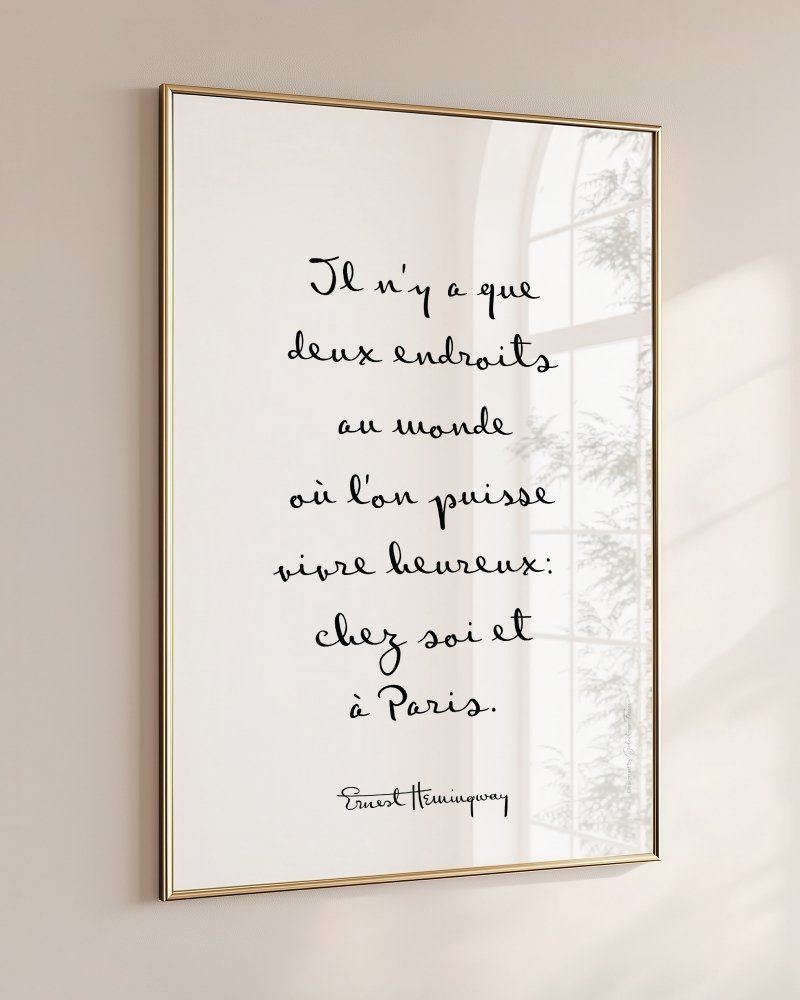 Il n'y a que
deux endroits
au monde
où l'on puisse
vivre heureux:
chez soi et
à Paris.
Ernest Hemingway